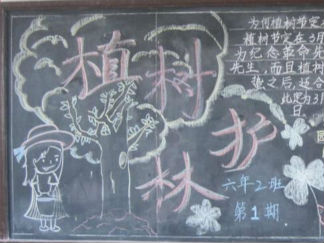 植树护林
六年2班
第1期
为何植树节定
植树节定在3月
为纪念革命先
先生，而且植树
蛰之后，适合
此定为3月
日